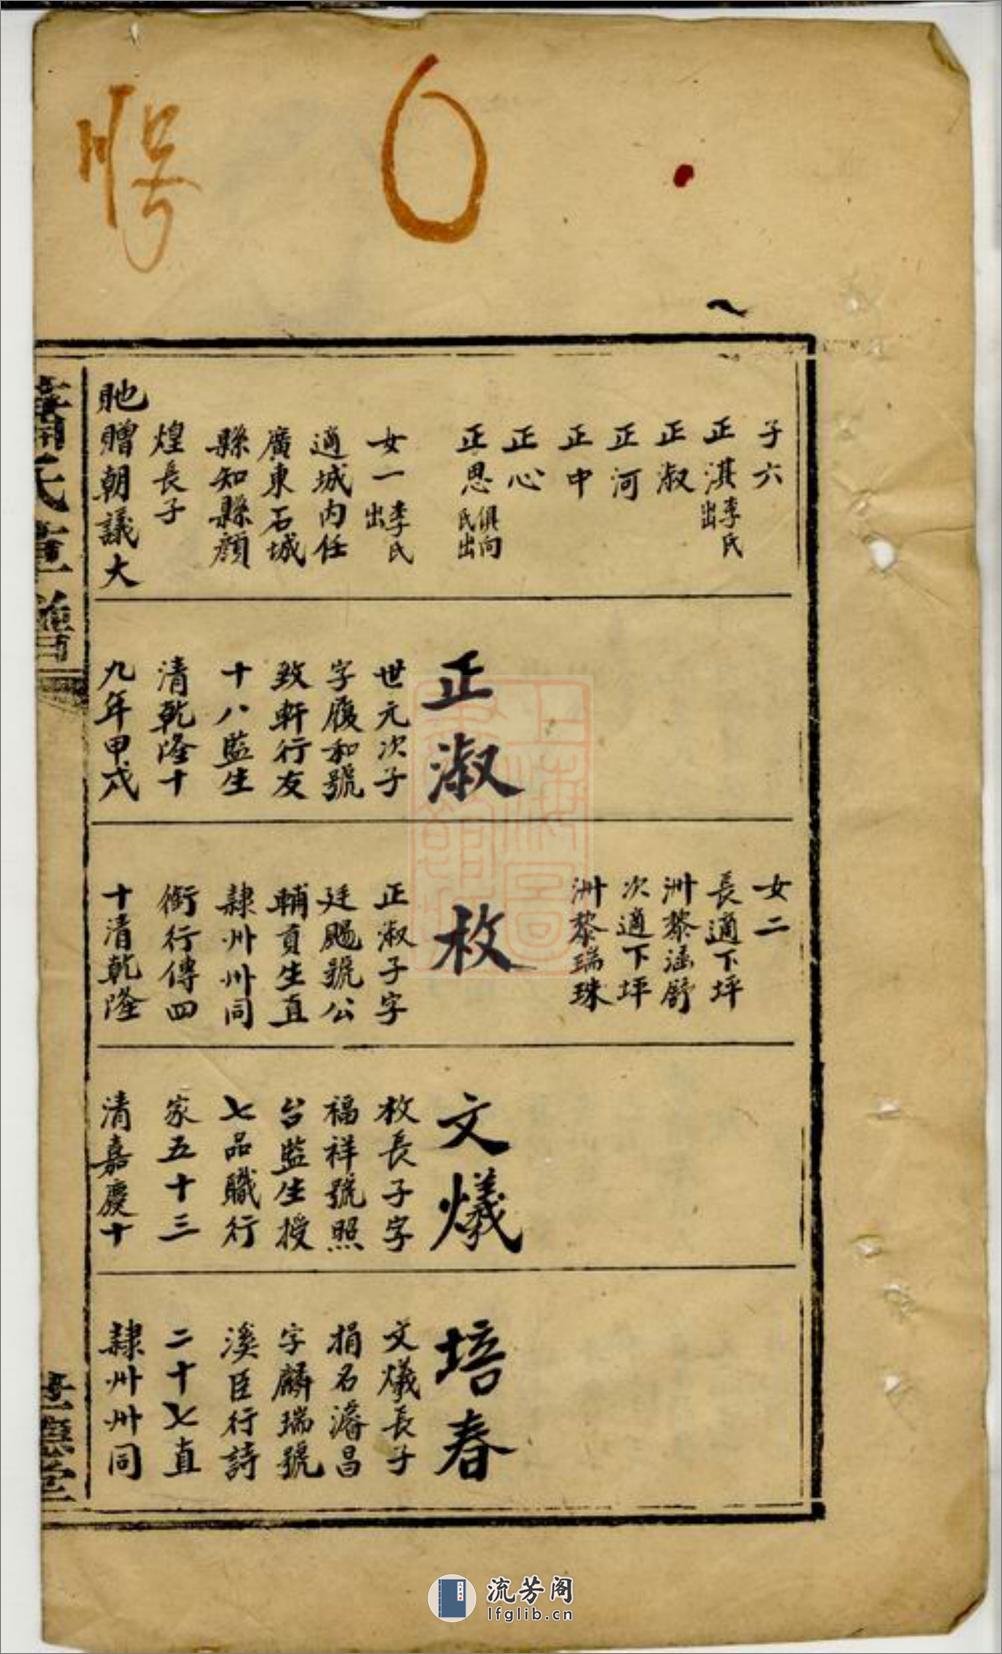 6
子六
正淇李氏出
正淑
正河
正中
正心
正恩俱向氏出
女一李氏出
適城内任
廣東石城
縣知縣顔
煌長子
貤贈朝議大
正淑
世元次子
字履和號
致軒行友
十八監生
清乾隆十
九年甲戌
女二
長適下坪
洲黎涵舒
次適下坪
洲黎瑞珠
枚
正淑子字
廷颺號公
輔貢生直
隸州州同
銜行傳四
十清乾隆
文爔
枚長子字
福祥號照
台監生授
七品職行
家五十三
清嘉慶十
培春
文爔長子
捐名濬昌
字麟瑞號
溪臣行詩
二十七直
隸州州同
氏
譜
堂
流芳阁
lfglib.cn